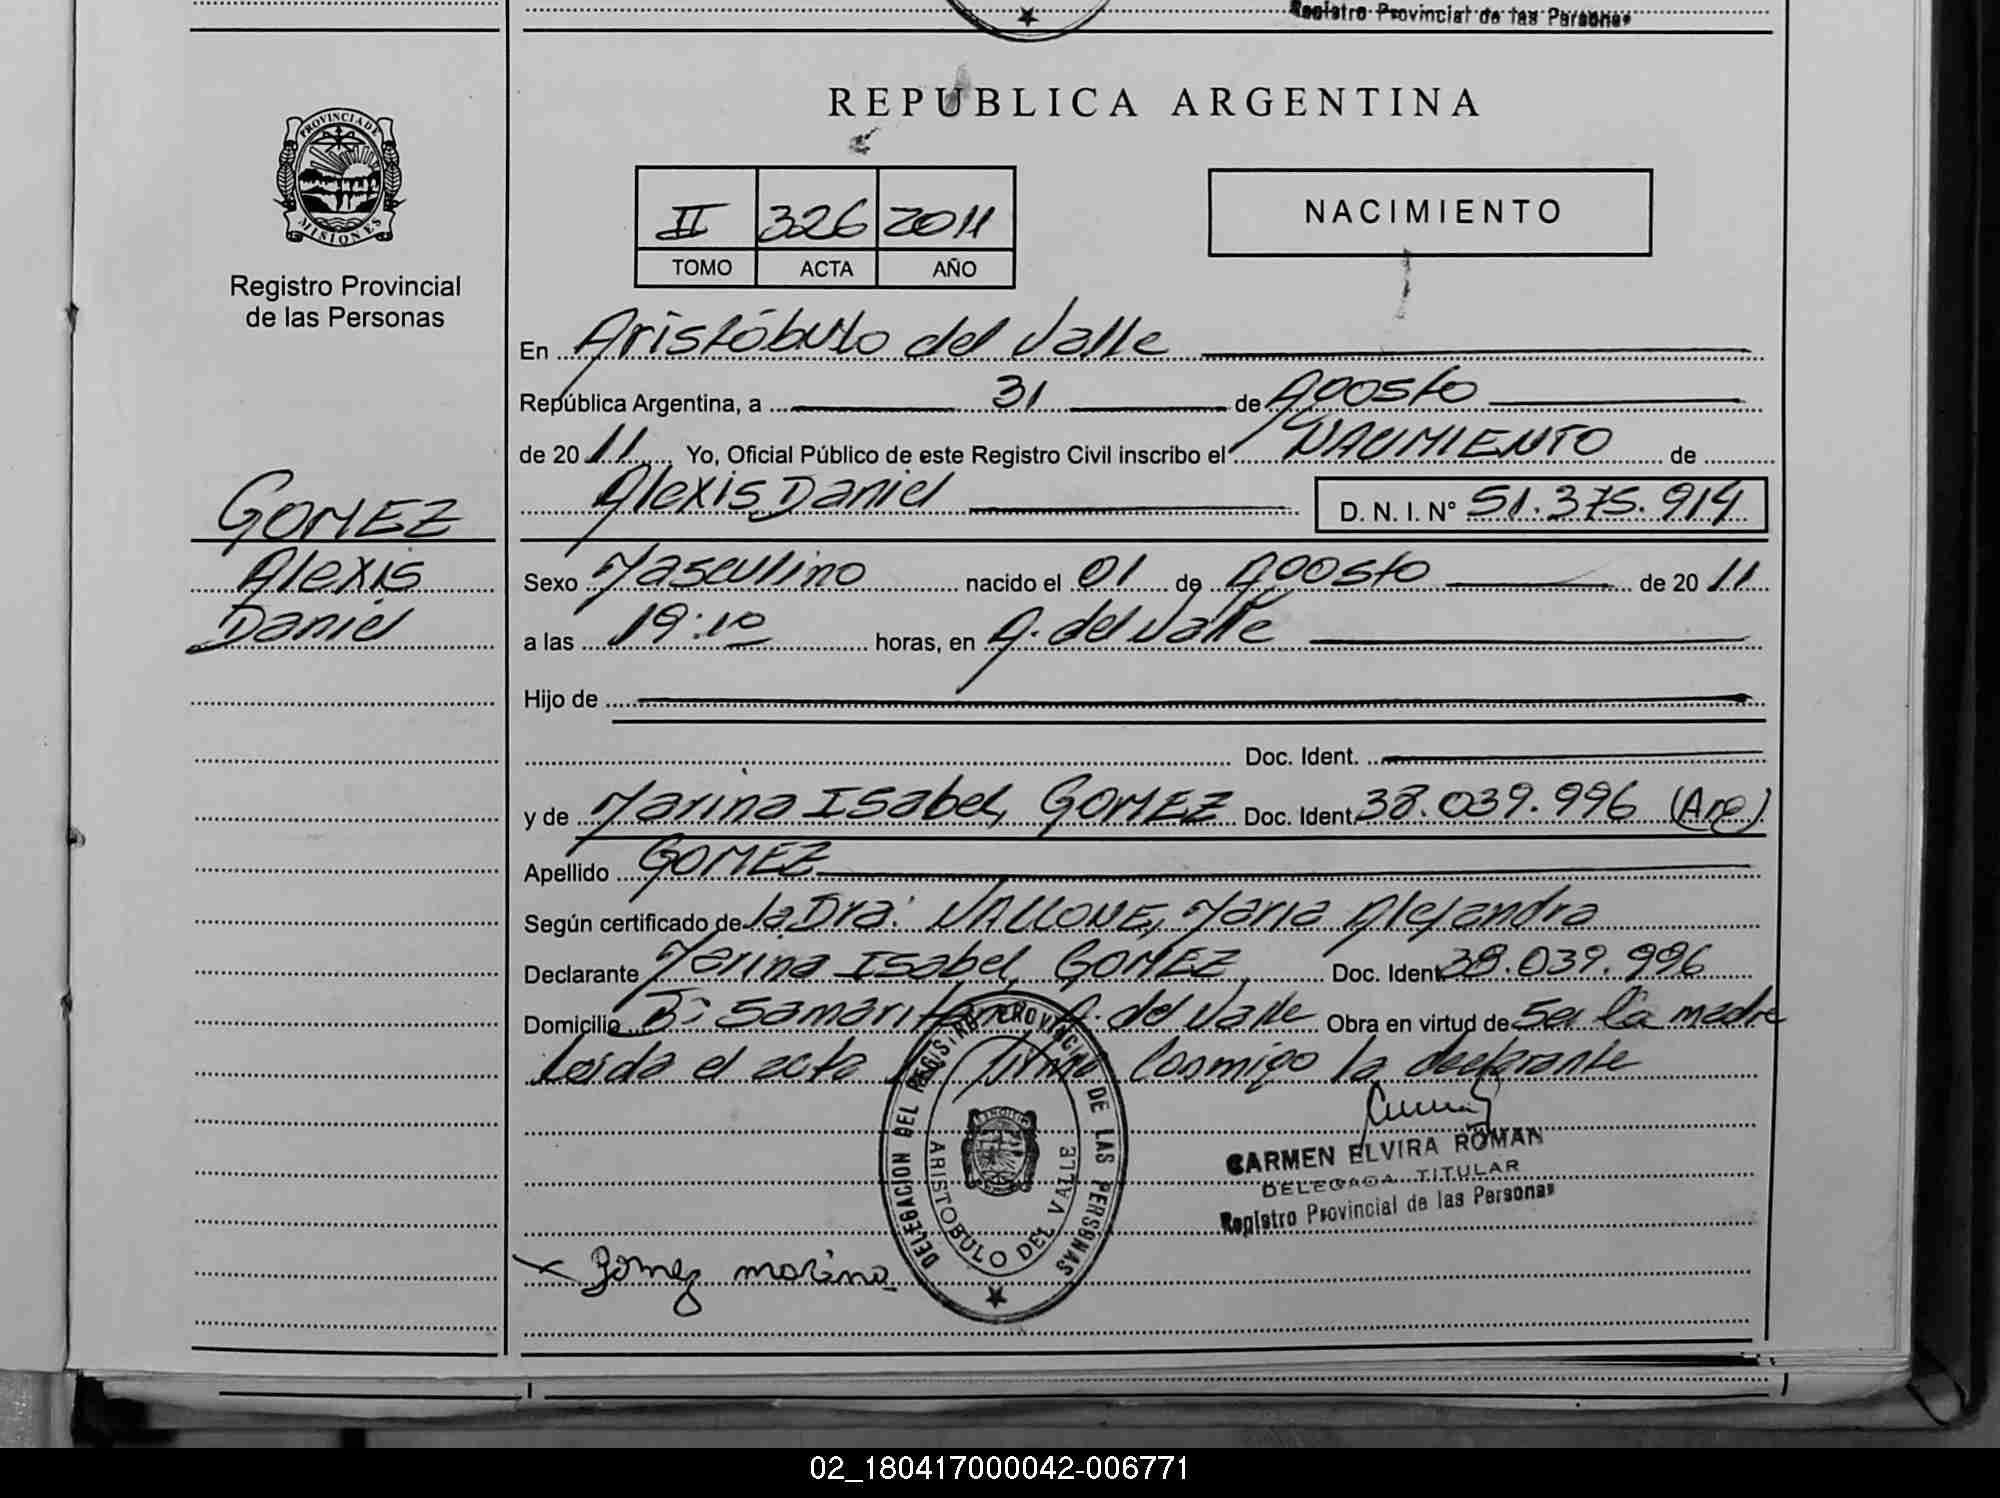 Registro Provincial de las Personas
PROVINCIA DE
MISIONES
Registro Provincial
de las Personas
GOMEZ
Alexis
Daniel
REPUBLICA ARGENTINA
II 326 2011
TOMO ACTA AÑO
NACIMIENTO
En Aristóbulo del Valle
República Argentina, a 31 de Agosto
de 2011 Yo, Oficial Público de este Registro Civil inscribo el NACIMIENTO de
Alexis Daniel D. N. I. N° 51.375.914
Sexo Masculino nacido el 01 de Agosto de 2011
a las 19:10 horas, en A. del Valle
Hijo de
Doc. Ident.
y de Marina Isabel, GOMEZ Doc. Ident. 38.039.996 (Arg)
Apellido GOMEZ
Según certificado de la Dra: VALLONE, Maria Alejandra
Declarante Marina Isabel, GOMEZ Doc. Ident. 38.039.996
Domicilio A. del Valle Obra en virtud de ser la madre
Leida el acta firma conmigo la declarante
DELEGACION DEL REGISTRO PROVINCIAL DE LAS PERSONAS
ARISTOBULO DEL VALLE
CARMEN ELVIRA ROMAN
DELEGADA TITULAR
Registro Provincial de las Personas
Gomez marina
02_180417000042-006771